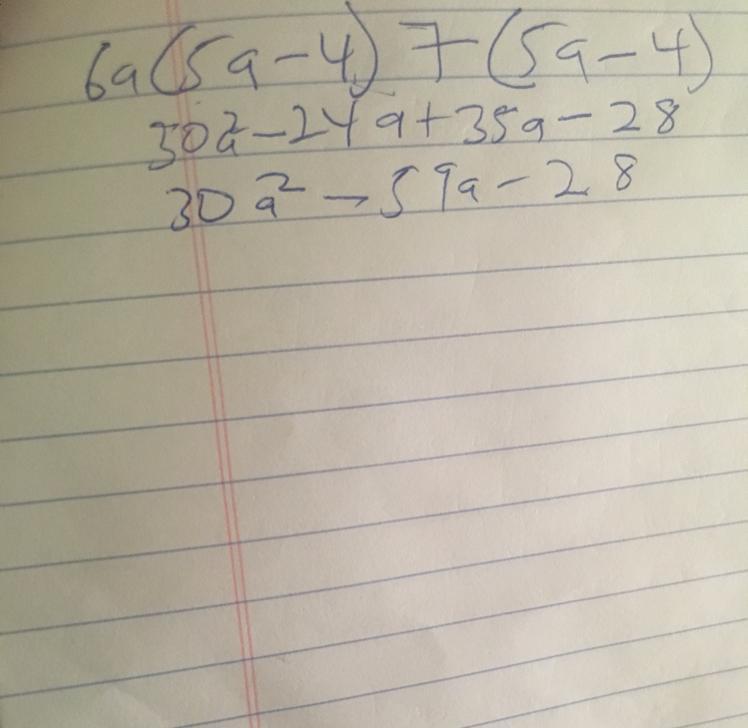 6a(5a-4) 7-(5a-4)
30a²-24a+35a-28
30a²-59a-28